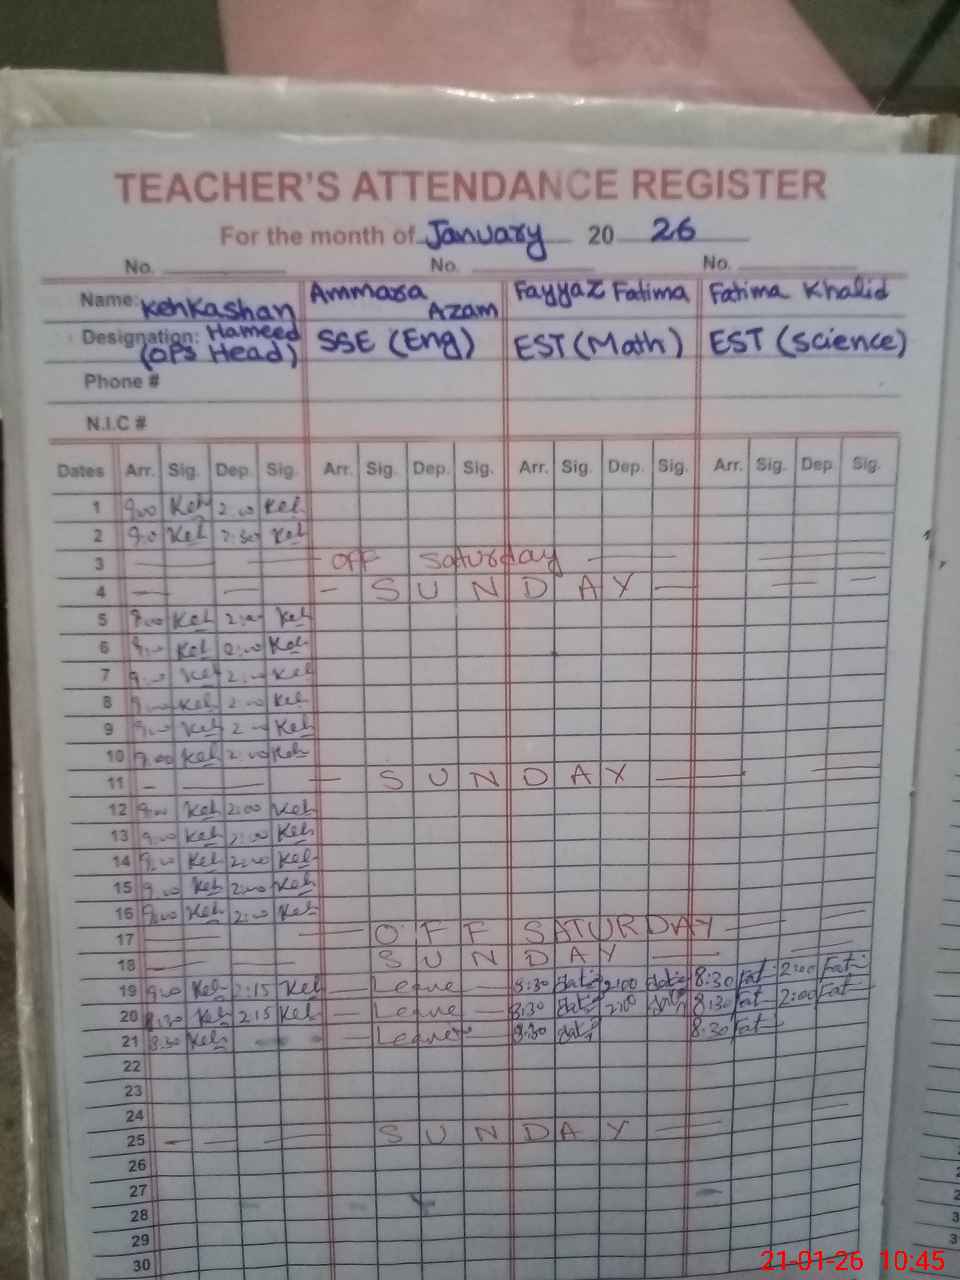 TEACHER'S ATTENDANCE REGISTER
For the month of January 20 26
No. No. No.
Name: KehKashan Hameed Ammara Azam Fayyaz Fatima Fatima Khalid
Designation: (OPs Head) SSE (Eng) EST (Math) EST (Science)
Phone #
N.I.C #
Dates Arr. Sig. Dep. Sig. Arr. Sig. Dep. Sig. Arr. Sig. Dep. Sig. Arr. Sig. Dep. Sig.
1 9:00 Keh 2:00 Keh
2 9:0 Keh 2:30 Keh
3 OFF Saturday
4 SUNDAY
5 9:00 Keh 2:00 Keh
6 9:00 Keh 2:00 Keh
7 9:00 Keh 2:00 Keh
8 9:00 Keh 2:00 Keh
9 9:00 Keh 2:00 Keh
10 9:00 Keh 2:00 Keh
11 SUNDAY
12 9:00 Keh 2:00 Keh
13 9:00 Keh 2:00 Keh
14 9:00 Keh 2:00 Keh
15 9:00 Keh 2:00 Keh
16 9:00 Keh 2:00 Keh
17 OFF SATURDAY
18 SUNDAY
19 9:00 Keh 2:15 Keh Leave 8:30 2:00 8:30 Fat 2:00 Fat
20 8:30 Keh 2:15 Keh Leave 8:30 2:00 8:30 Fat 2:00 Fat
21 8:30 Keh Leave 8:30 8:30 Fat
22
23
24
25 SUNDAY
26
27
28
29
30
21-01-26 10:45